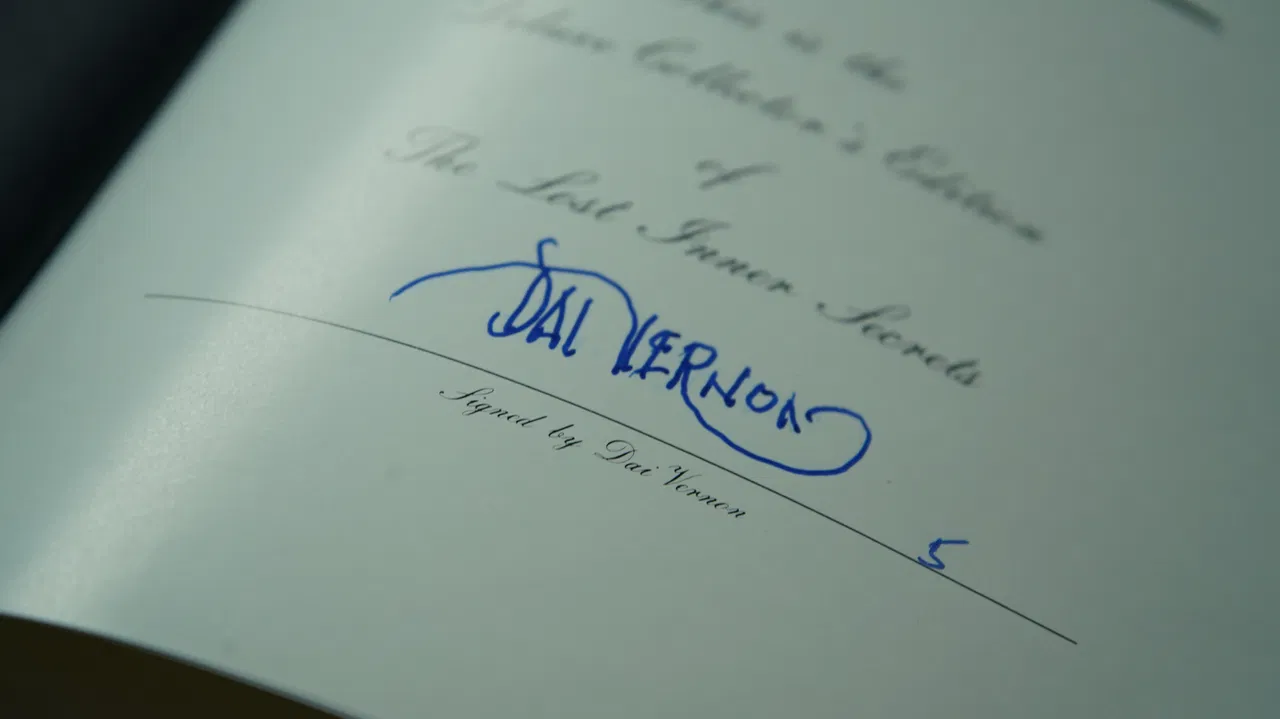 This is the
Deluxe Collector's Edition
of
The Lost Inner Secrets
DAI VERNON
5
Signed by Dai Vernon